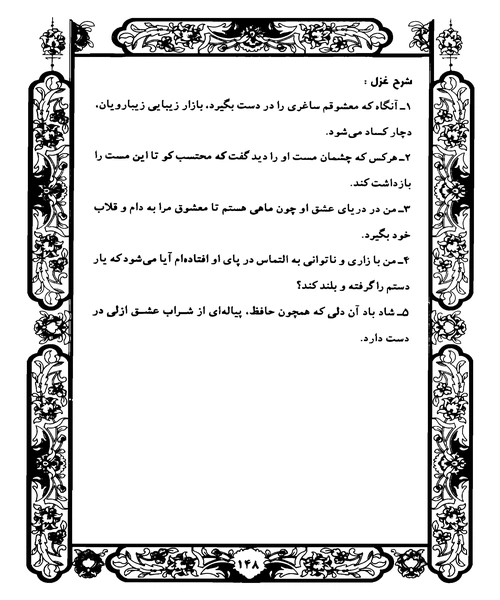 شرح غزل :
۱ـ آنگاه که معشوقم ساغری را در دست بگیرد، بازار زیبایی زیبارویان،
دچار کساد می‌شود.
۲ـ هرکس که چشمان مست او را دید گفت که محتسب کو تا این مست را
بازداشت کند.
۳ـ من در دریای عشق او چون ماهی هستم تا معشوق مرا به دام و قلاب
خود بگیرد.
۴ـ من با زاری و ناتوانی به التماس در پای او افتاده‌ام آیا می‌شود که یار
دستم را گرفته و بلند کند؟
۵ـ شاد باد آن دلی که همچون حافظ، پیاله‌ای از شراب عشق ازلی در
دست دارد.
۱۴۸